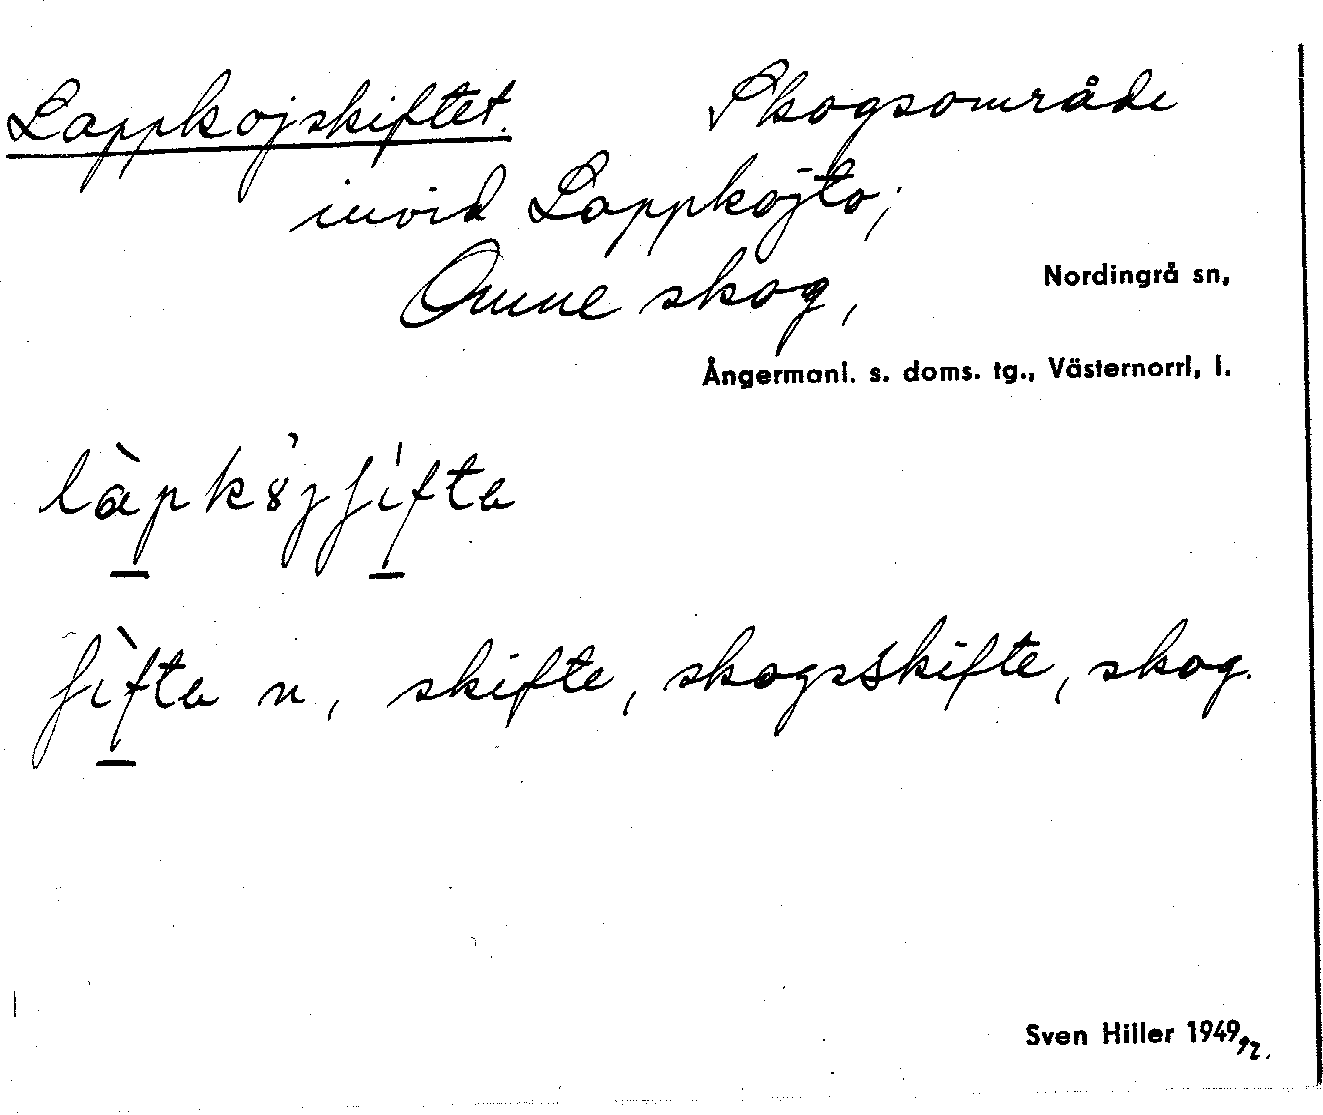 Lappkojskiftet. Skogsområde
invid Lappkojto;
Omne skog,
Nordingrå sn,
Ångermanl. s. doms. tg., Västernorrl, l.
n, skifte, skogsskifte, skog.
Sven Hiller 1949